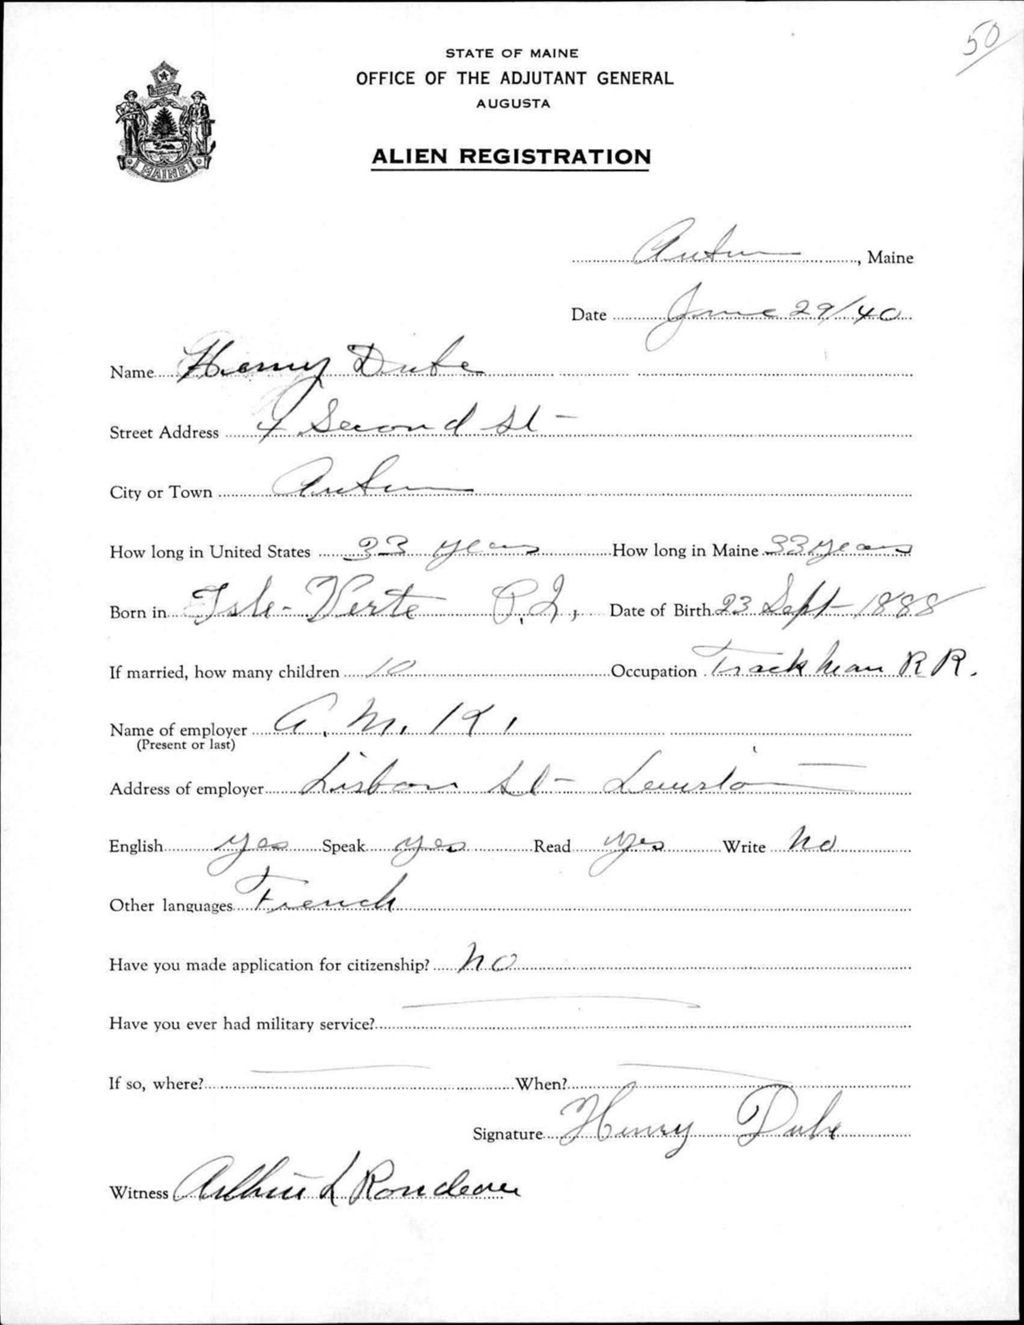 50
STATE OF MAINE
OFFICE OF THE ADJUTANT GENERAL
AUGUSTA
MAINE
ALIEN REGISTRATION
Auburn, Maine
Date June 29/40
Name Henry Dube
Street Address 4 Second St
City or Town Auburn
How long in United States 33 years How long in Maine 33 years
Born in Isle-Verte P.Q. Date of Birth 23 Sept 1888
If married, how many children 10 Occupation Trackman RR.
Name of employer
(Present or last)
Address of employer Lisbon St Lewiston
English yes Speak yes Read yes Write No
Other languages French
Have you made application for citizenship? No
Have you ever had military service?
If so, where? When?
Signature Henry Dube
Witness L Rondeau